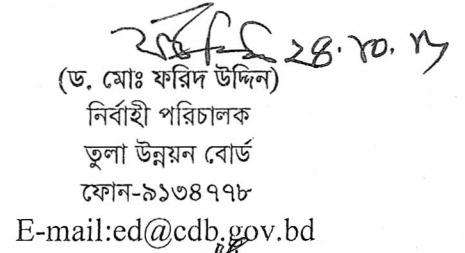 ২৪.১০.১৭
(ড. মোঃ ফরিদ উদ্দিন)
নির্বাহী পরিচালক
তুলা উন্নয়ন বোর্ড
ফোন-৯১৩৪৭৭৮
E-mail:ed@cdb.gov.bd